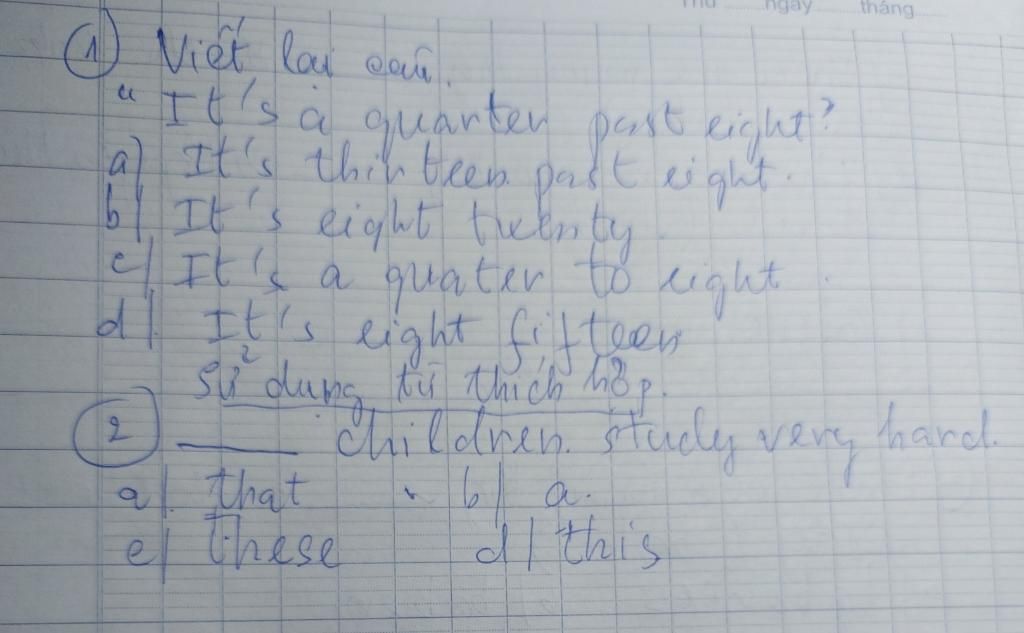 ngày tháng
① Viết lại câu.
" It's a quarter past eight?
a) It's thirteen past eight.
b) It's eight twenty.
c) It's a quater to eight.
d). It's eight fifteen
sử dụng từ thích hợp.
② ____ children. study very hard.
a). that b) a.
c) these d) this